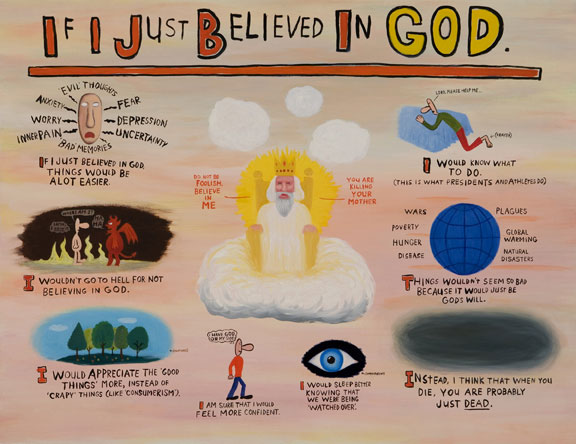 IF I JUST BELIEVED IN GOD.
EVIL THOUGHTS
ANXIETY
FEAR
WORRY
DEPRESSION
INNER PAIN
UNCERTAINTY
BAD MEMORIES
IF I JUST BELIEVED IN GOD,
THINGS WOULD BE
ALOT EASIER.
LORD, PLEASE HELP ME...
(PRAYER)
I WOULD KNOW WHAT
TO DO.
(THIS IS WHAT PRESIDENTS AND ATHLETES DO)
DO NOT BE
FOOLISH.
BELIEVE
IN
ME
YOU ARE
KILLING
YOUR
MOTHER
I WOULDN'T GO TO HELL FOR NOT
BELIEVING IN GOD.
WARS
PLAGUES
POVERTY
GLOBAL
WARMING
HUNGER
NATURAL
DISASTERS
DISEASE
THINGS WOULDN'T SEEM SO BAD
BECAUSE IT WOULD JUST BE
GOD'S WILL.
I WOULD APPRECIATE THE 'GOOD
THINGS' MORE, INSTEAD OF
'CRAPY' THINGS (LIKE 'CONSUMERISM').
I HAVE GOD
ON MY SIDE
I AM SURE THAT I WOULD
FEEL MORE CONFIDENT.
I WOULD SLEEP BETTER
KNOWING THAT
WE WERE BEING
'WATCHED OVER'.
INSTEAD, I THINK THAT WHEN YOU
DIE, YOU ARE PROBABLY
JUST DEAD.